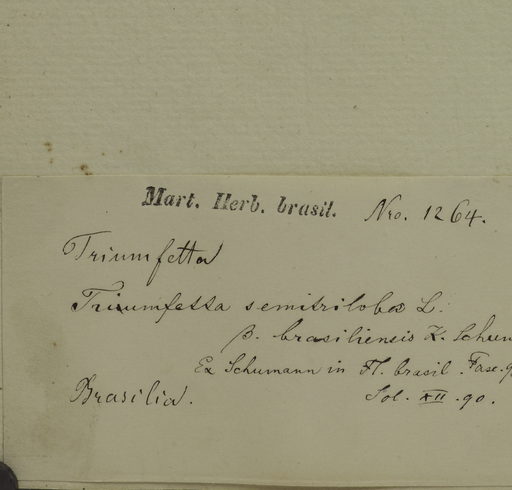 Mart. Herb. brasil. Nro. 1264.
Triumfetta
Triumfetta semitriloba L.
β. brasiliensis K. Schum
Ex Schumann in Fl. brasil. Fasc.
Brasilia. Sol. XII. 90.